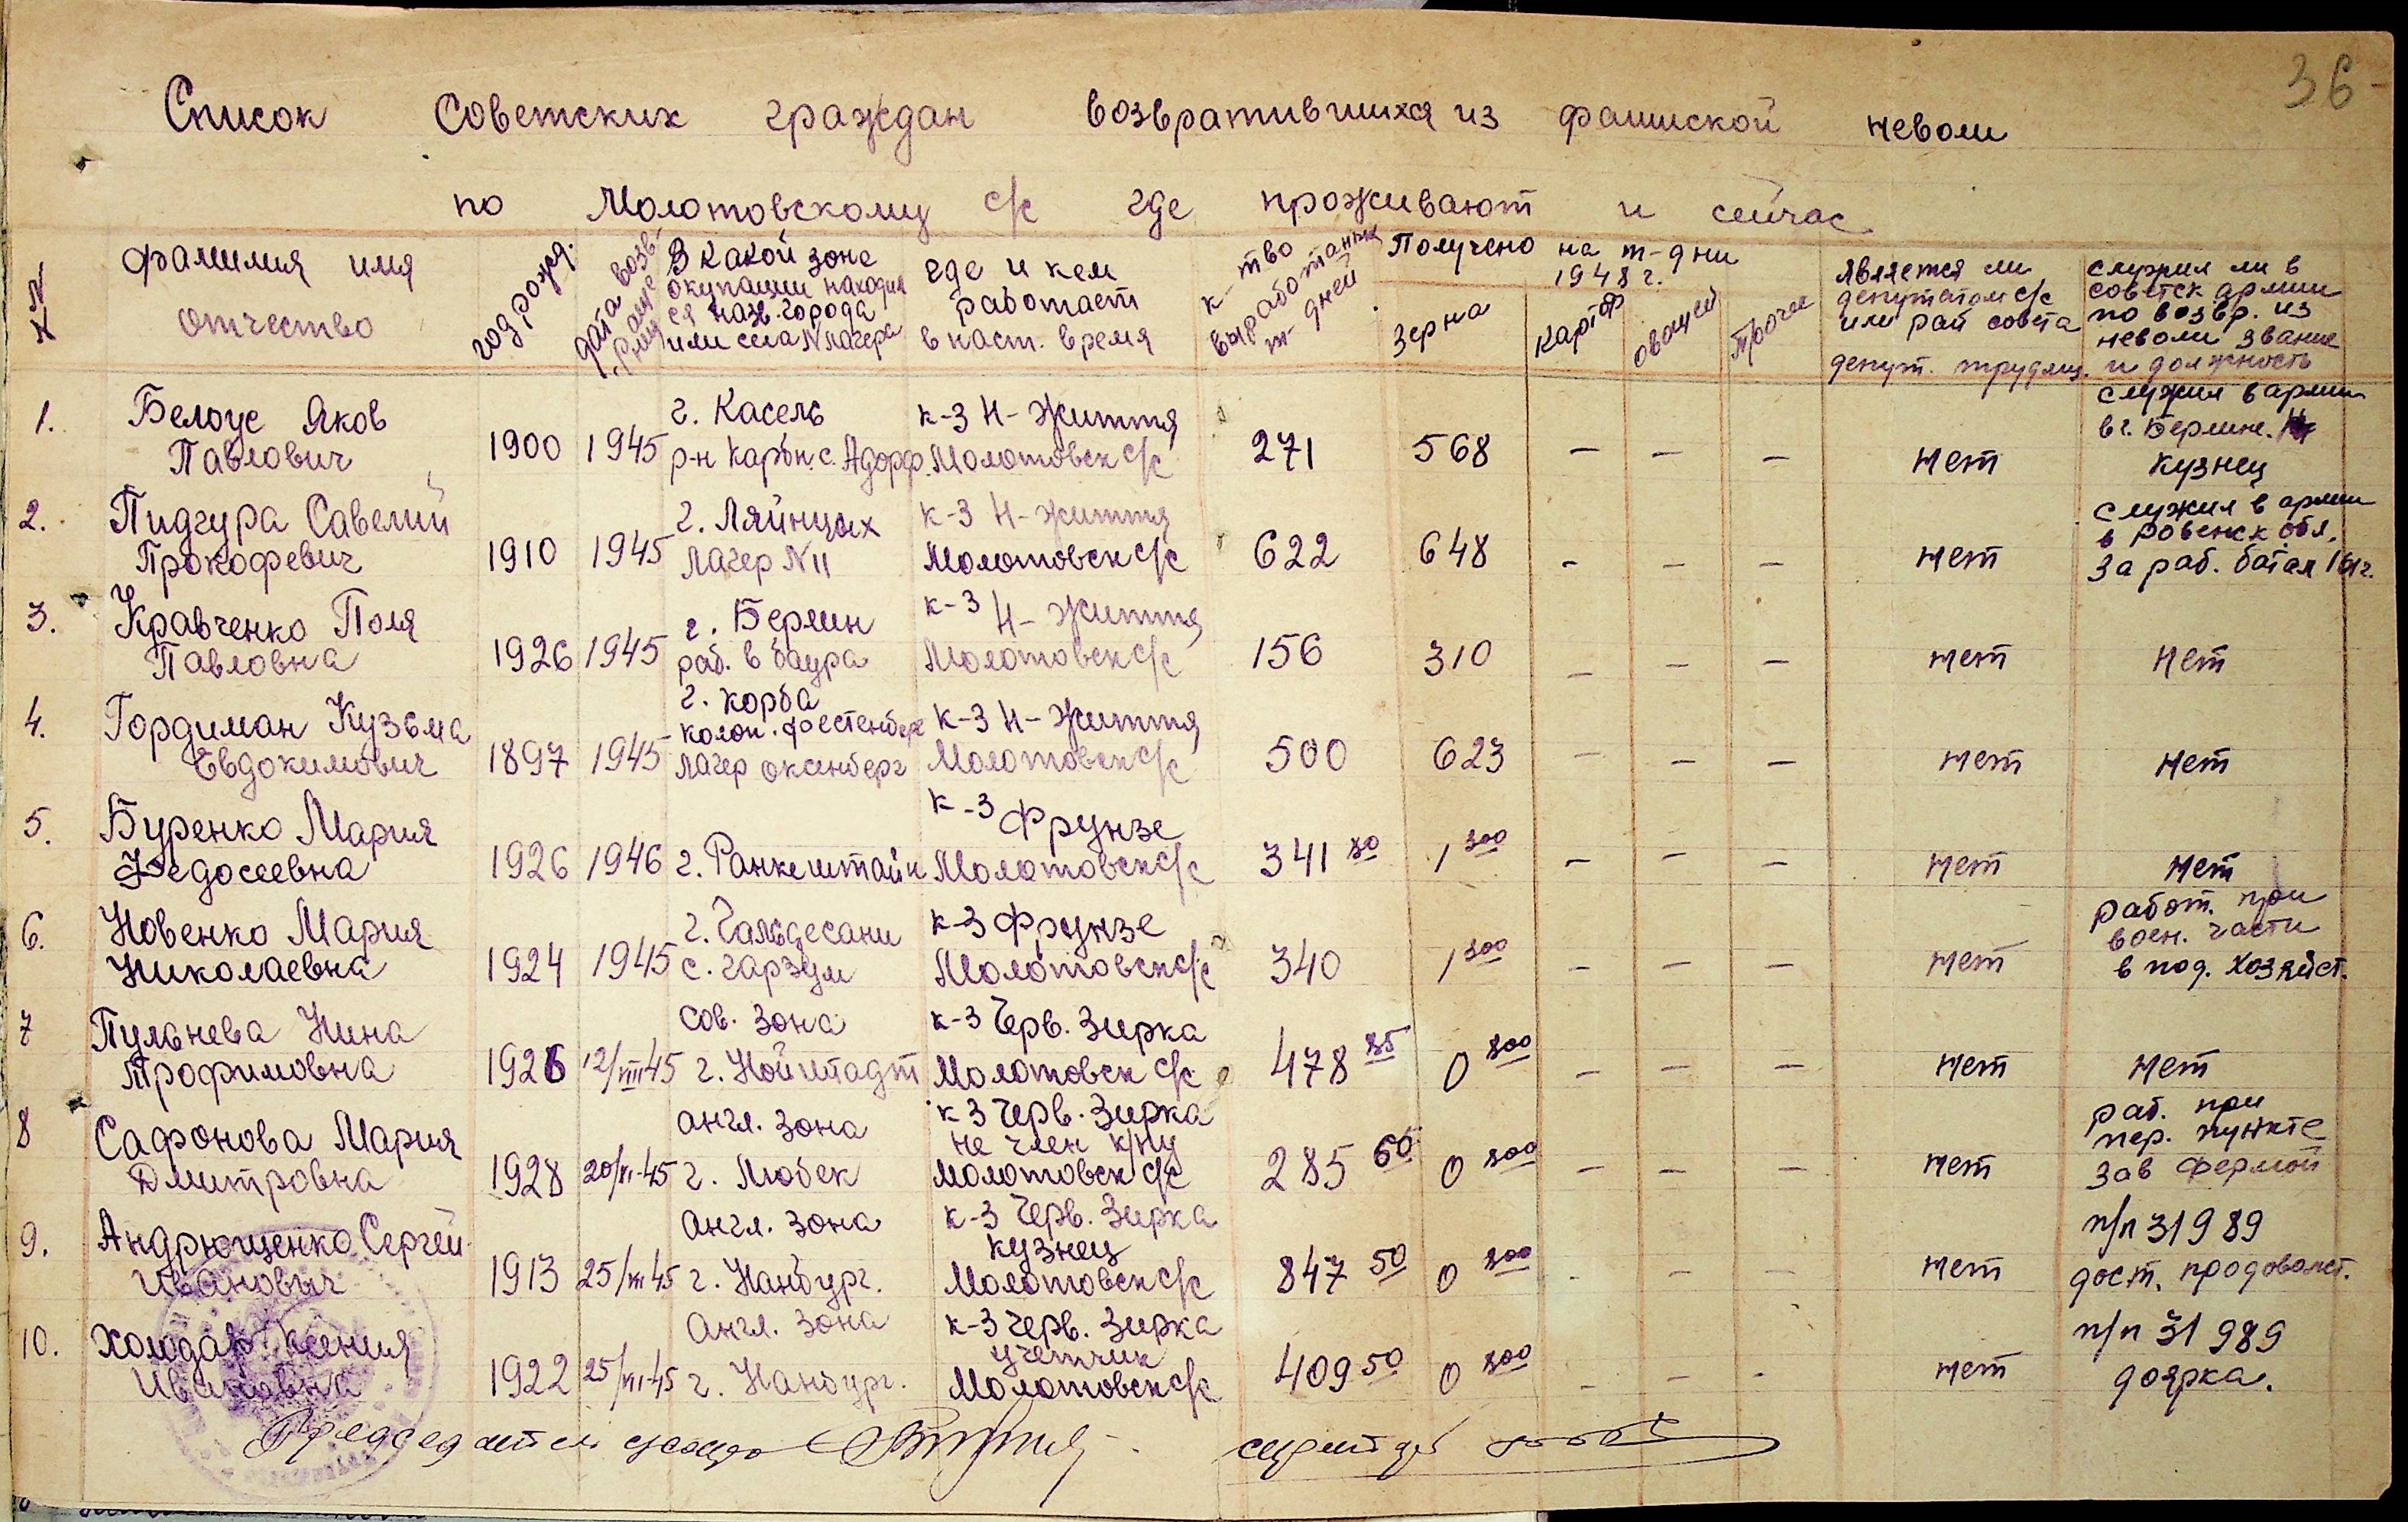 36
Список Советских граждан возвратившихся из фашиской неволи
по Молотовскому с/с где проживают и сейчас
Фамилия имя
отчество
год рожд.
дата возв-
ращe
В какой зоне
окупации находил
ся назв. города
или села N лагера
где и кем
работает
в наст. время
к-тво
выработаных
т-дней
Получено на т-дни
1948 г.
Зерна
картоф
овощей
Прочее
Является ли
депутатом с/с
или рай совета
депут. трудящ.
Служил ли в
советск армии
по возвр. из
неволи звание
и должность
1.
Белоус Яков
Павлович
1900
1945
г. Касель
р-н Карбн. с. Адорф.
к-з Н-Життя
Молотовск с/с
271
568
–
–
–
нет
служил в армии
в г. Берлине.
кузнец
2.
Пидгура Савелий
Прокофевич
1910
1945
г. Ляйнцых
Лагер N 11
к-з Н-Життя
Молотовск с/с
622
648
–
–
–
нет
служил в армии
в Ровенск обл.
за раб. батал
3.
Кравченко Поля
Павловна
1926
1945
г. Берлин
раб. в баура
к-з Н-Життя
Молотовск с/с
156
310
–
–
–
нет
нет
4.
Гордиман Кузьма
Евдокимович
1897
1945
г. Корба
колон. фестенберг
Лагер оксенберг
к-з Н-Життя
Молотовск с/с
500
623
–
–
–
нет
нет
5.
Буренко Мария
Федосеевна
1926
1946
г. Ранкештайн
к-з Фрунзе
Молотовск с/с
341 80
1 300
–
–
–
нет
нет
6.
Новенко Мария
Николаевна
1924
1945
г. Гальдесани
с. гарзум
к-з Фрунзе
Молотовск с/с
340
1 300
–
–
–
нет
работ. при
воен. части
в под. хозяйст.
7
Пульнева Нина
Трофимовна
1926
12/VIII 45
Сов. зона
г. Нойштадт
к-з Черв. Зирка
Молотовск с/с
478 85
0 800
–
–
–
нет
нет
8
Сафонова Мария
Дмитровна
1928
20/VI-45
англ. зона
г. Любек
к-з Черв. Зирка
не член к/пу
Молотовск с/с
285 60
0 800
–
–
–
нет
раб. при
пер. пункте
зав фермой
9.
Андрющенко Сергей
Иванович
1913
25/VII 45
Англ. зона
г. Нанбург.
к-з Черв. Зирка
кузнец
Молотовск с/с
847 50
0 800
–
–
–
нет
п/п 31989
дост. продовольст.
10.
Холодар Ксения
Ивановна
1922
25/VII-45
Англ. зона
г. Нанбург.
к-з Черв. Зирка
учетчик
Молотовск с/с
409 50
0 800
–
–
–
нет
п/п 31989
доярка.
Председатель с/совета
секретарь